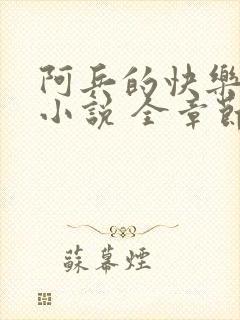 阿兵的快樂
小說 全章節
蘇幕煙